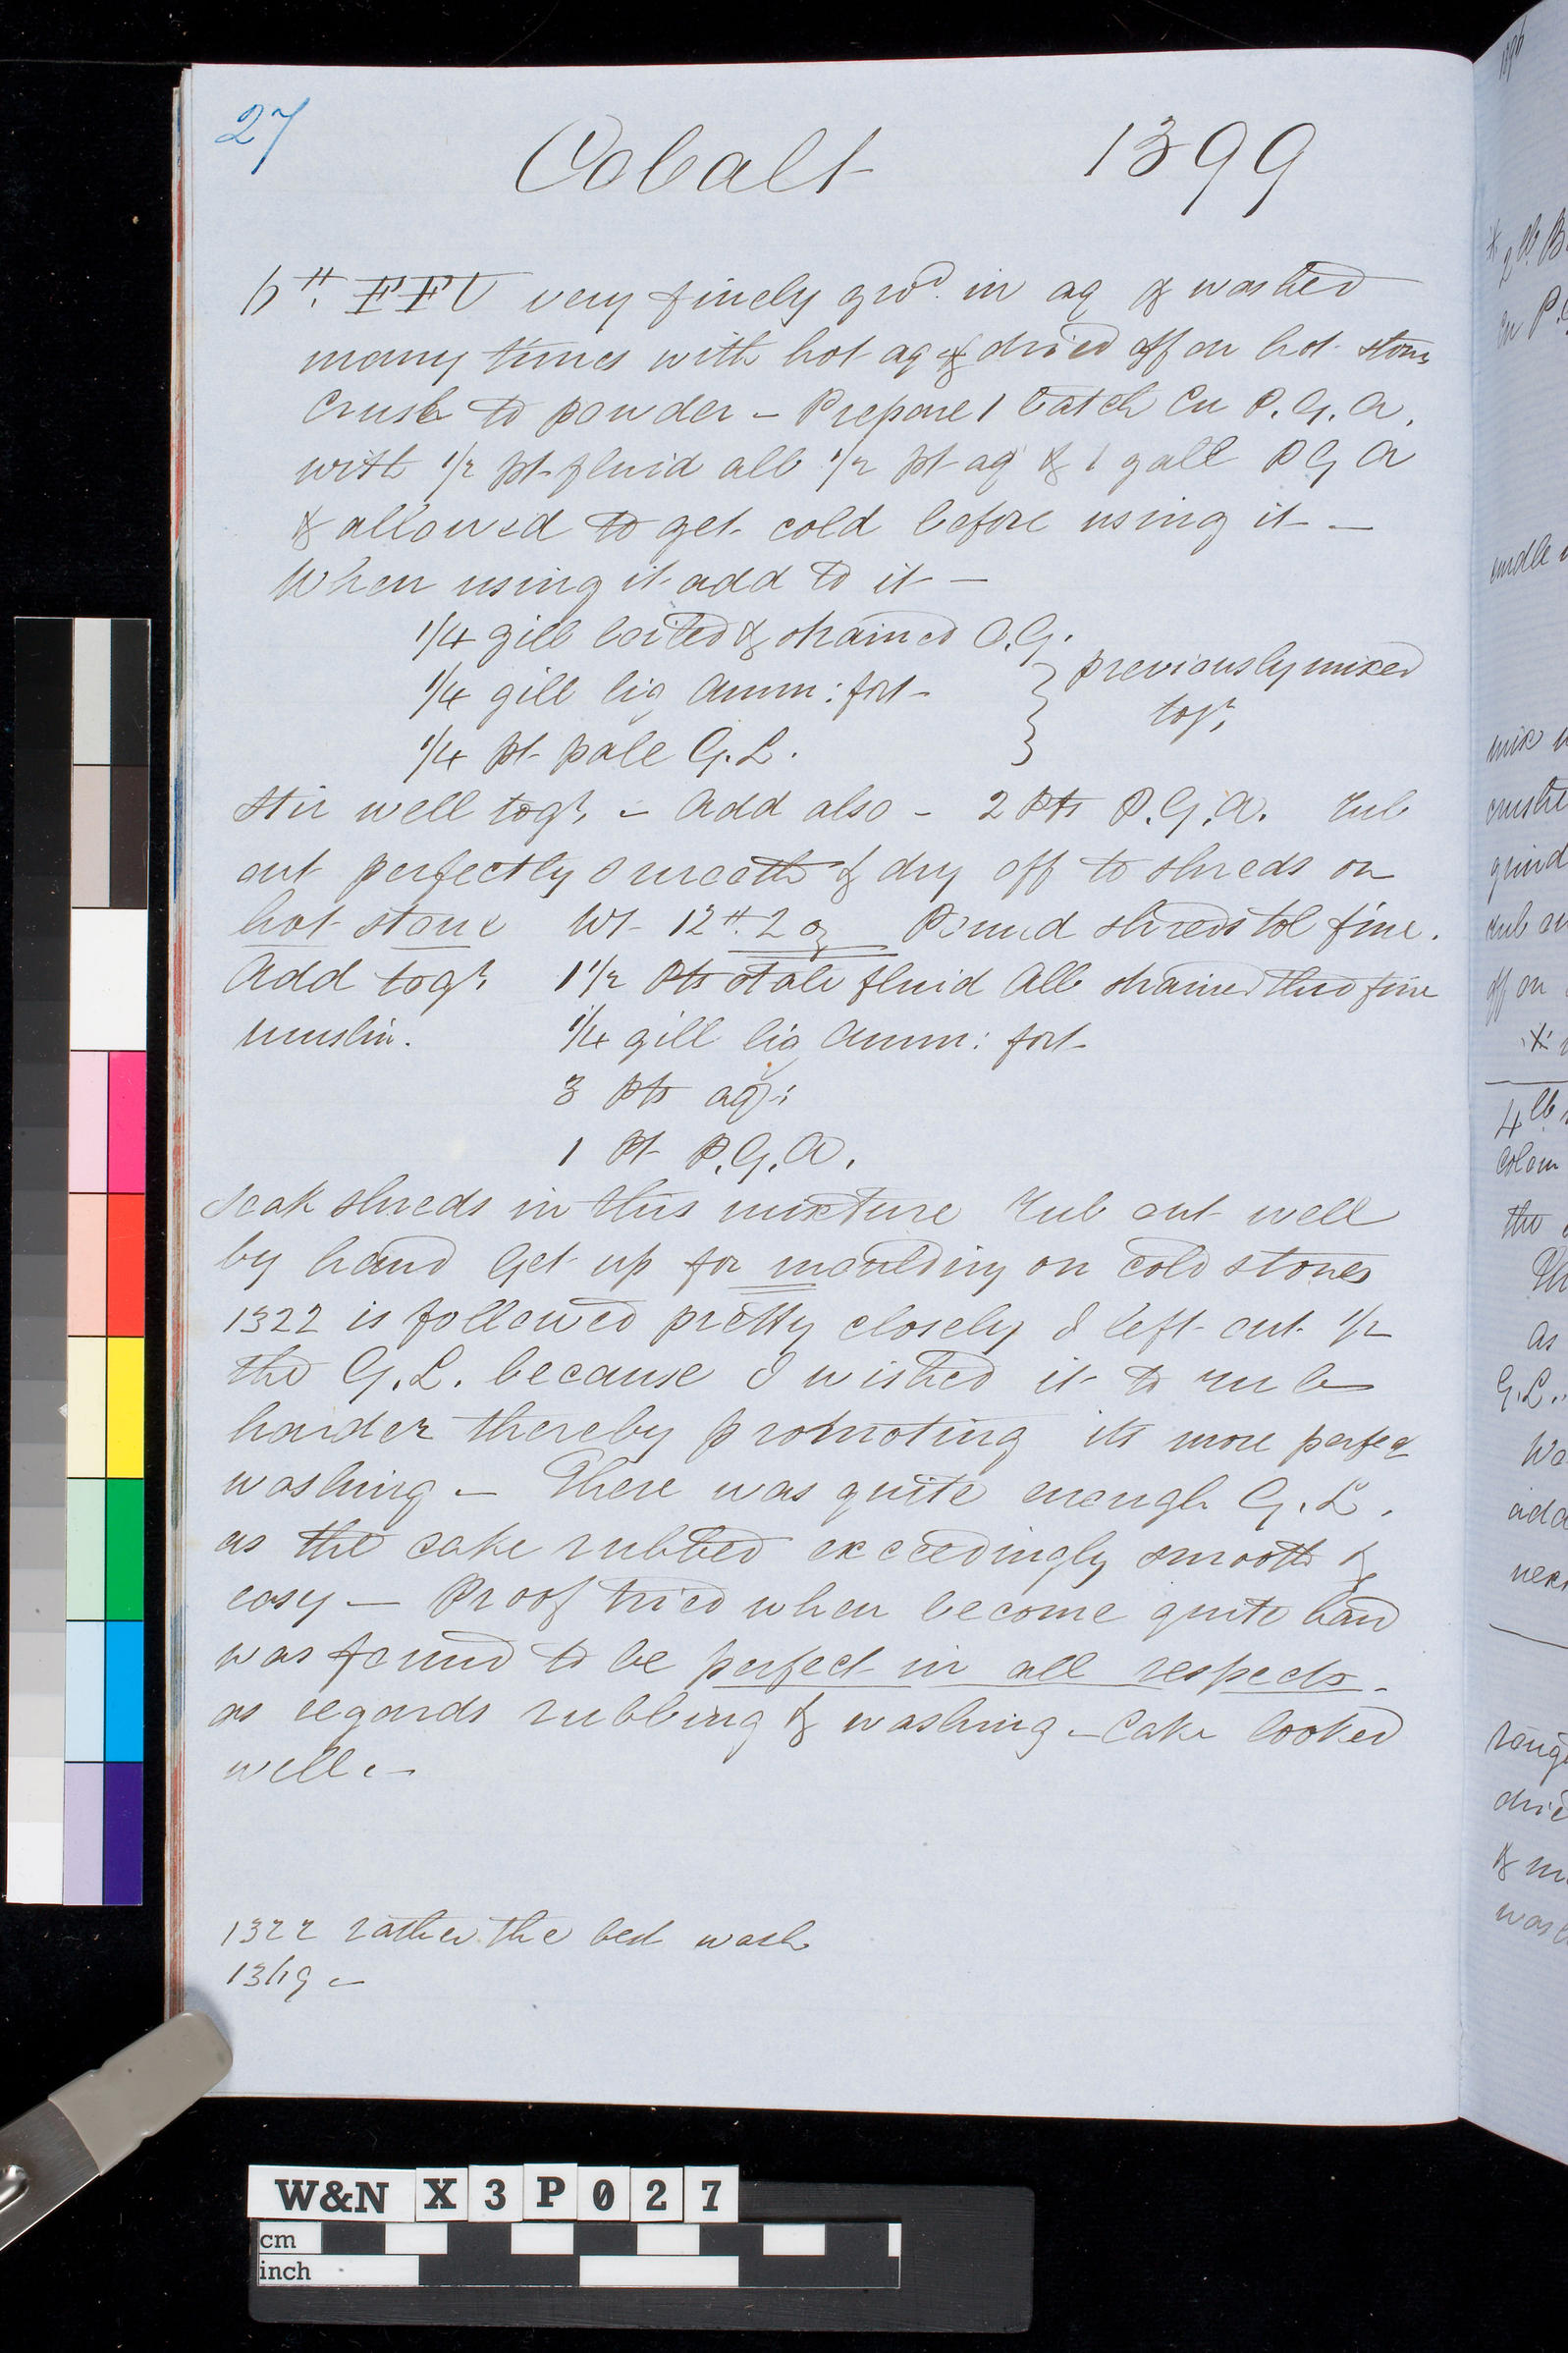 27
Cobalt 1399
FFU very finely gro.d in aq & washed
many times with hot aq & dried off on hot stone
Crush to powder – Prepare 1 batch Cu P.G.A.
with 1/2 pt fluid alb 1/2 pt aq & 1 gall PGA
& allowed to get cold before using it –
When using it add to it –
1/4 gill boiled & strained O.G.
1/4 gill liq Amm: fort
1/4 pt pale G.L.
} previously mixed
togr,
Stir well togr, – Add also – 2 Pts P.G.A. rub
out perfectly smooth & dry off to shreds on
hot stone Wt 12 lb. 2 oz Pound shreds tol fine.
Add togr 1 1/2 Pts stale fluid Alb strained thro fine
muslin. 1/4 gill liq Amm: fort
3 pts aq:
1 Pt P.G.A.
Soak shreds in this mixture rub out well
by hand Get up for moulding on cold stones
1322 is followed pretty closely I left out 1/2
the G.L. because I wished it to rub
harder thereby promoting its more perfect
washing – There was quite enough G.L.
as the cake rubbed exceedingly smooth &
easy – Proof tried when become quite hard
was found to be perfect in all respects –
as regards rubbing & washing – Cake looked
well. –
1322 rather the best wash
W&N X 3 P 0 2 7
cm
inch
* 2 lb
Cu P.
mix
grind
off on
4 lb
the
as
G.L.